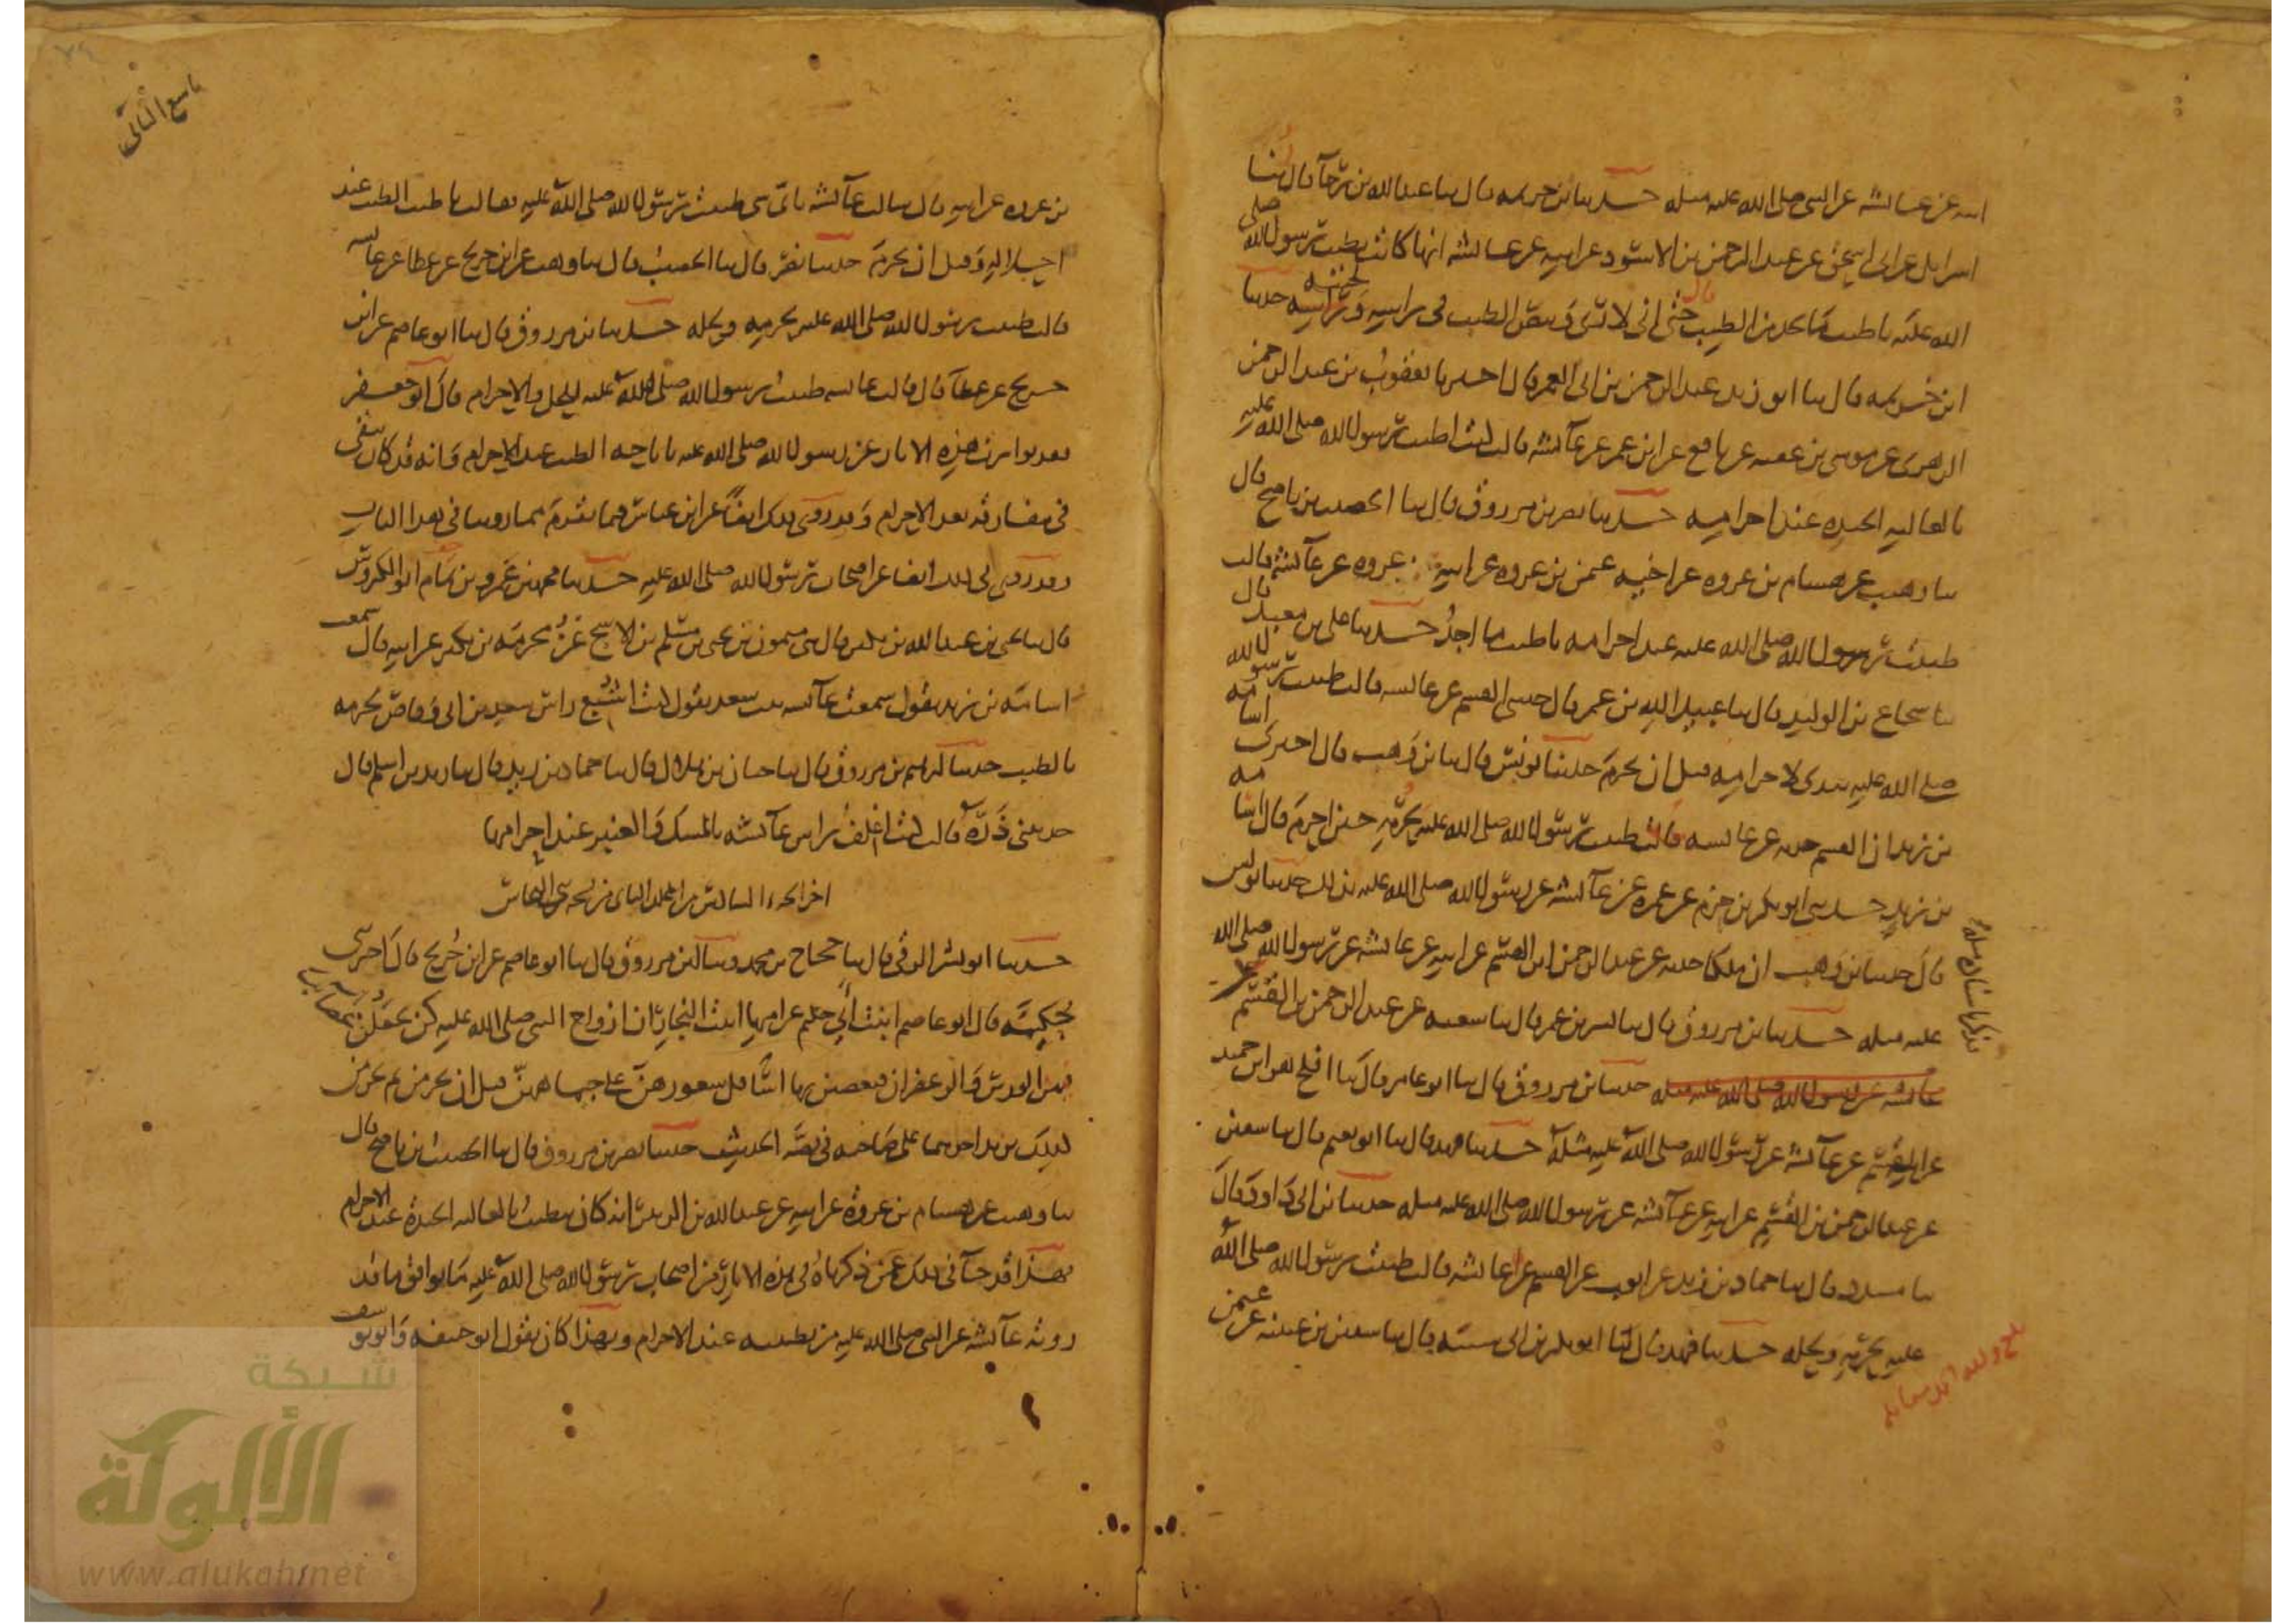 ابيه عن عائشة عن النبي صلى الله عليه مثله حدثنا ابن خزيمة قال ثنا عبد الله بن رجآ قال ثنا
اسرايل عن ابى اسحق عن عبد الرحمن بن الاسود عن ابيه عن عائشة انها كانت تطيب رسول الله صلى
الله عليه باطيب ما تجد من الطيب قال حتى انى لارى وبيص الطيب فى راسه ولحيته حدثنا
ابن خزيمة قال ثنا ابو زيد عبد الرحمن بن ابى الغمر قال اخبرنا يعقوب بن عبد الرحمن
الزهرى عن موسى بن عقبه عن نافع عن ابن عمر عن عآئشة قالت كنت اطيب رسول الله صلى الله عليه
بالغاليه الجيده عند احرامه حدثنا نصر بن مرزوق قال ثنا الخصيب بن ناصح قال
ثنا وهيب عن هشام بن عروه عن اخيه عثمن بن عروه عن ابيه عروه عن عآئشة قالت
طيبت رسول الله صلى الله عليه عند احرامه باطيب ما اجد حدثنا على بن معبد قال
ثنا شجاع بن الوليد قال ثنا عبيد الله بن عمر قال حدثنى القسم عن عائشه قالت طيبت رسول الله
صلى الله عليه بيدى لاحرامه قبل ان يحرم حدثنا يونس قال ثنا بن وهب قال اخبرنى اسامه
بن زيد ان القسم حدثه عن عائشه قالت طيبت رسول الله صلى الله عليه لحرمه حين احرم قال اسامه
بن زيد حدثنى ابو بكر بن حزم عن عمره عن عآئشه عن رسول الله صلى الله عليه بذلك حدثنا يونس
قال حدثنا بن وهب ان ملكا حدثه عن عبد الرحمن ابن القسم عن ابيه عن عائشه عن رسول الله صلى الله
عليه مثله حدثنا بن مرزوق قال ثنا بشر بن عمر قال ثنا شعبه عن عبد الرحمن بن القسم
فذكر باسناده مثله
عائشه عن رسول الله صلى الله عليه مثله حدثنا بن مرزوق قال ثنا ابو عامر قال ثنا افلح هو ابن حميد
عن القسم عن عآئشه عن رسول الله صلى الله عليه مثله حدثنا فهد قال ثنا ابو نعيم قال ثنا سفين
عن عبد الرحمن بن القسم عن ابيه عن عآئشه عن رسول الله صلى الله عليه مثله حدثنا بن ابى داود قال
ثنا مسدد قال ثنا حماد بن زيد عن ايوب عن القسم عن عائشه قالت طيبت رسول الله صلى الله
عليه لحرمه ولحله حدثنا فهد قال ثنا ابو بكر بن ابى شيبه قال ثنا سفين بن عيينه عن عثمن
تاسع الثانى
بن عروه عن ابيه قال سالت عآئشه باى شى طيبت رسول الله صلى الله عليه فقالت باطيب الطيب عند
احلاله وقبل ان يحرم حدثنا نصر قال ثنا الخصيب قال ثنا وهيب عن ابن جريج عن عطا عن عائشه
قالت طيبت رسول الله صلى الله عليه لحرمه ولحله حدثنا بن مرزوق قال ثنا ابو عاصم عن ابن
جريج عن عطآ قال قالت عائشه طيبت رسول الله صلى الله عليه للحل والاحرام قال ابو جعفر
فقد تواترت هذه الاثار عن رسول الله صلى الله عليه باباحة الطيب عند الاحرام وانه قد كان يبقى
فى مفارقه بعد الاحرام وقد روى ذلك ايضا عن ابن عباس فيما تقدم مما روينا فى هذا الباب
وقد روى فى ذلك ايضا عن اصحاب رسول الله صلى الله عليه حدثنا محمد بن عمرو بن تمام ابو الكروس
قال ثنا يحيى بن عبد الله بن بكير قال ثنى ميمون بن يحيى بن مسلم بن الاشج عن مخرمه بن بكير عن ابيه قال سمعت
اسامه بن زيد يقول سمعت عآئشه بنت سعد تقول كنت اشبع راس سعد بن ابى وقاص لحرمه
بالطيب حدثنا ابرهيم بن مرزوق قال ثنا حبان بن هلال قال ثنا حماد بن زيد قال ثنا زيد بن اسلم قال
حدثتنى ذره قالت كنت اغلف راس عآئشه بالمسك والعنبر عند احرامها
اخر الجزء السادس من المجلد الثانى من نسخه
حدثنا ابو بشر الرقى قال ثنا حجاج بن محمد وثنا بن مرزوق قال ثنا ابو عاصم عن ابن جريج قال اخبرتنى
حكيمه قال ابو عاصم ابنت ابى حكيم عن امها ابنت النجار ان ازواج النبى صلى الله عليه كن يجعلن عصائب
فيهن الورس والزعفران فيعصبن بها اسافل شعورهن على جباههن قبل ان يحرمن ثم يحرمن
كذلك يزيد احدهما على صاحبه فى قصه الحديث حدثنا نصر بن مرزوق قال ثنا الخصيب بن ناصح قال
ثنا وهيب عن هشام بن عروة عن ابيه عن عبد الله بن الزبير انه كان يتطيب بالغاليه الجيدة عند الاحرام
فهذا قد جآ فى ذلك عمن ذكرناه فى هذه الاثار من اصحاب رسول الله صلى الله عليه ما يوافق ما قد
روته عآئشه عن النبى صلى الله عليه من تطيبه عند الاحرام وبهذا كان يقول ابو حنيفه وابو يوسف
شبكة
الألوكة
www.alukah.net